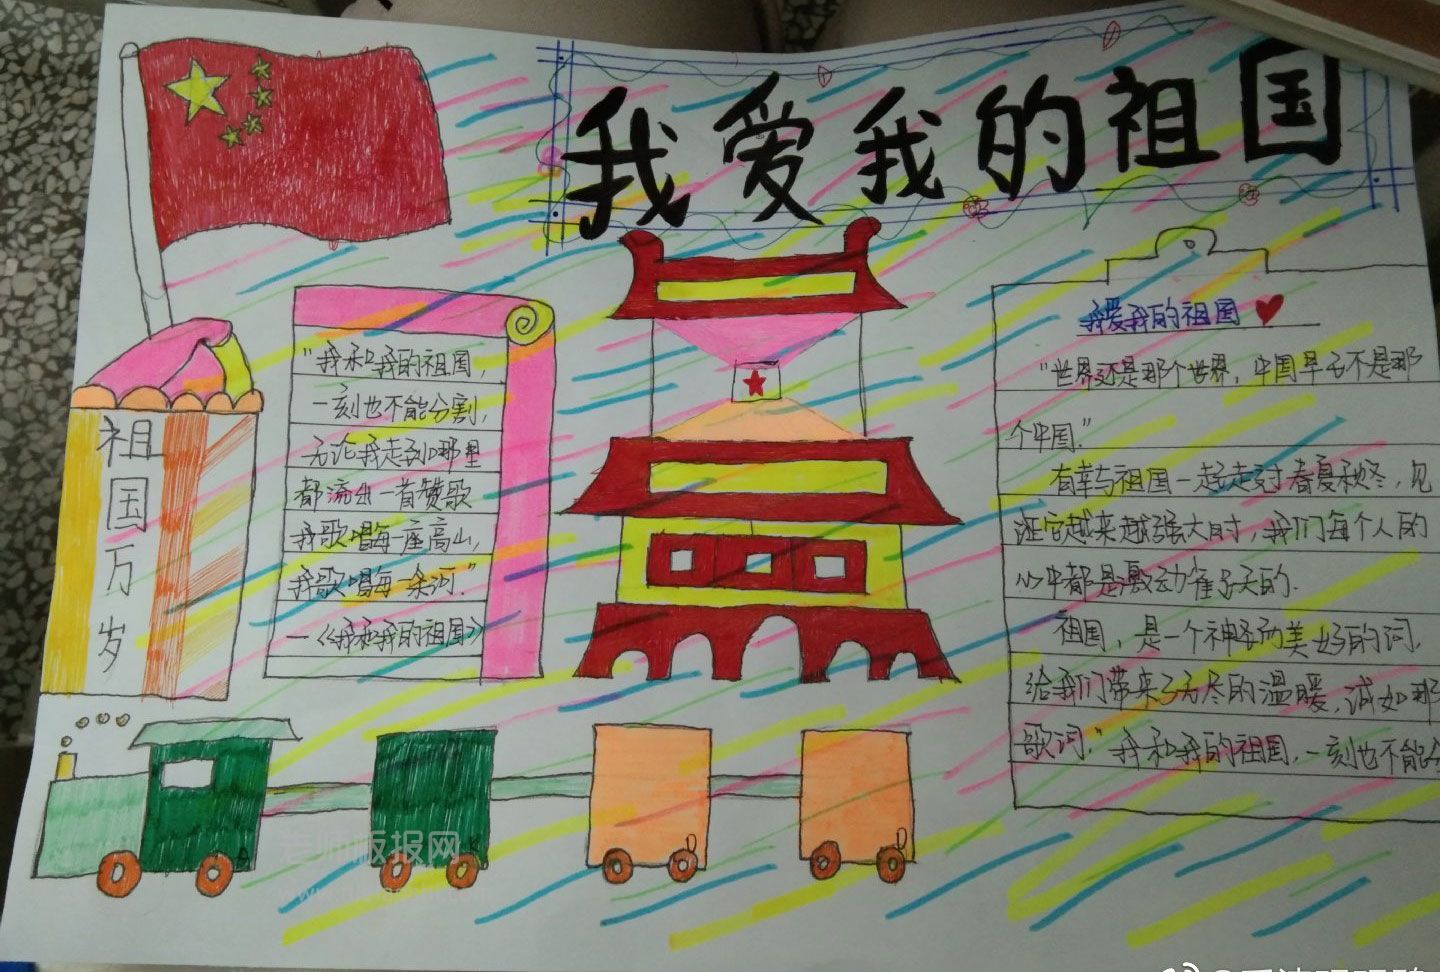 我爱我的祖国
祖国万岁
“我和我的祖国，
一刻也不能分割，
无论我走到哪里
都流出一首赞歌
我歌唱每一座高山，
我歌唱每一条河.”
—《我和我的祖国》
我爱我的祖国
“世界还是那个世界，中国早已不是那
个中国.”
有幸与祖国一起走过春夏秋冬，见
证它越来越强大时，我们每个人的
心中都是激动
的.
祖国，是一个神圣而美好的词，
给我们带来了无尽的温暖，诚如那
歌词，“我和我的祖国，一刻也不能分
老师板报网